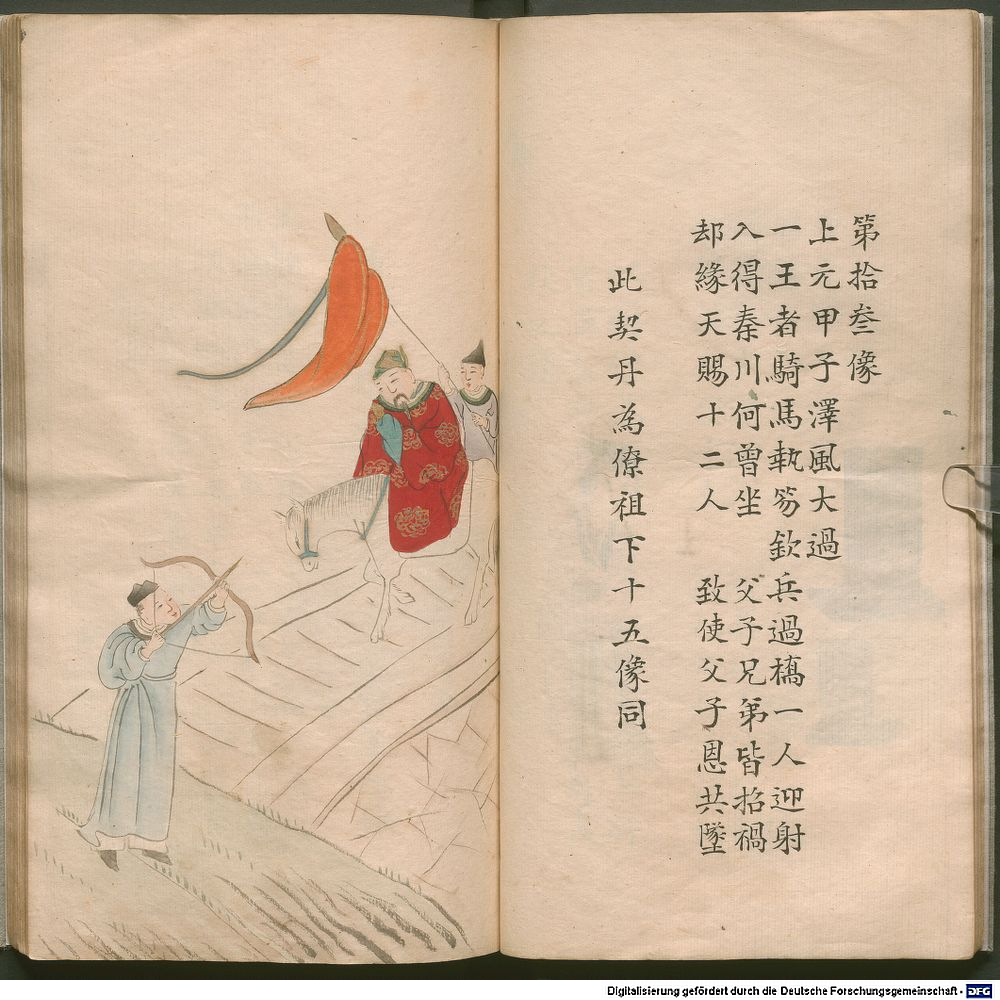 第拾叁像
上元甲子澤風大過
一王者騎馬執笏欽兵過槗一人迎射
入得秦川何曾坐 父子兄弟皆招禍
却緣天賜十二人 致使父子恩共墜
此契丹為僚祖下十五像同
Digitalisierung gefördert durch die Deutsche Forschungsgemeinschaft - DFG